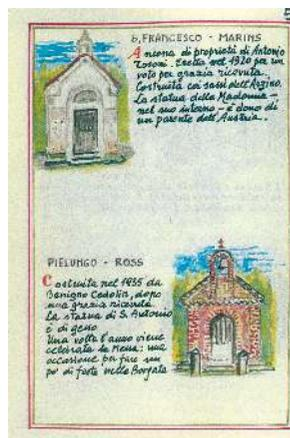 S. FRANCESCO - MARINS
Ancona di proprietà di Antonio
Tosoni. Eretta nel 1920 per un
voto per grazia ricevuta.
Costruita coi sassi dell'Arzino.
La statua della Madonna -
nel suo interno - è dono di
un parente dell'Austria.
PIELUNGO - ROSS
Costruita nel 1935 da
Benigno Cedolin, dopo
una grazia ricevuta.
La statua di S. Antonio
è di gesso
Una volta l'anno viene
celebrata la Messa: una
occasione per fare un
po' di festa nella Borgata